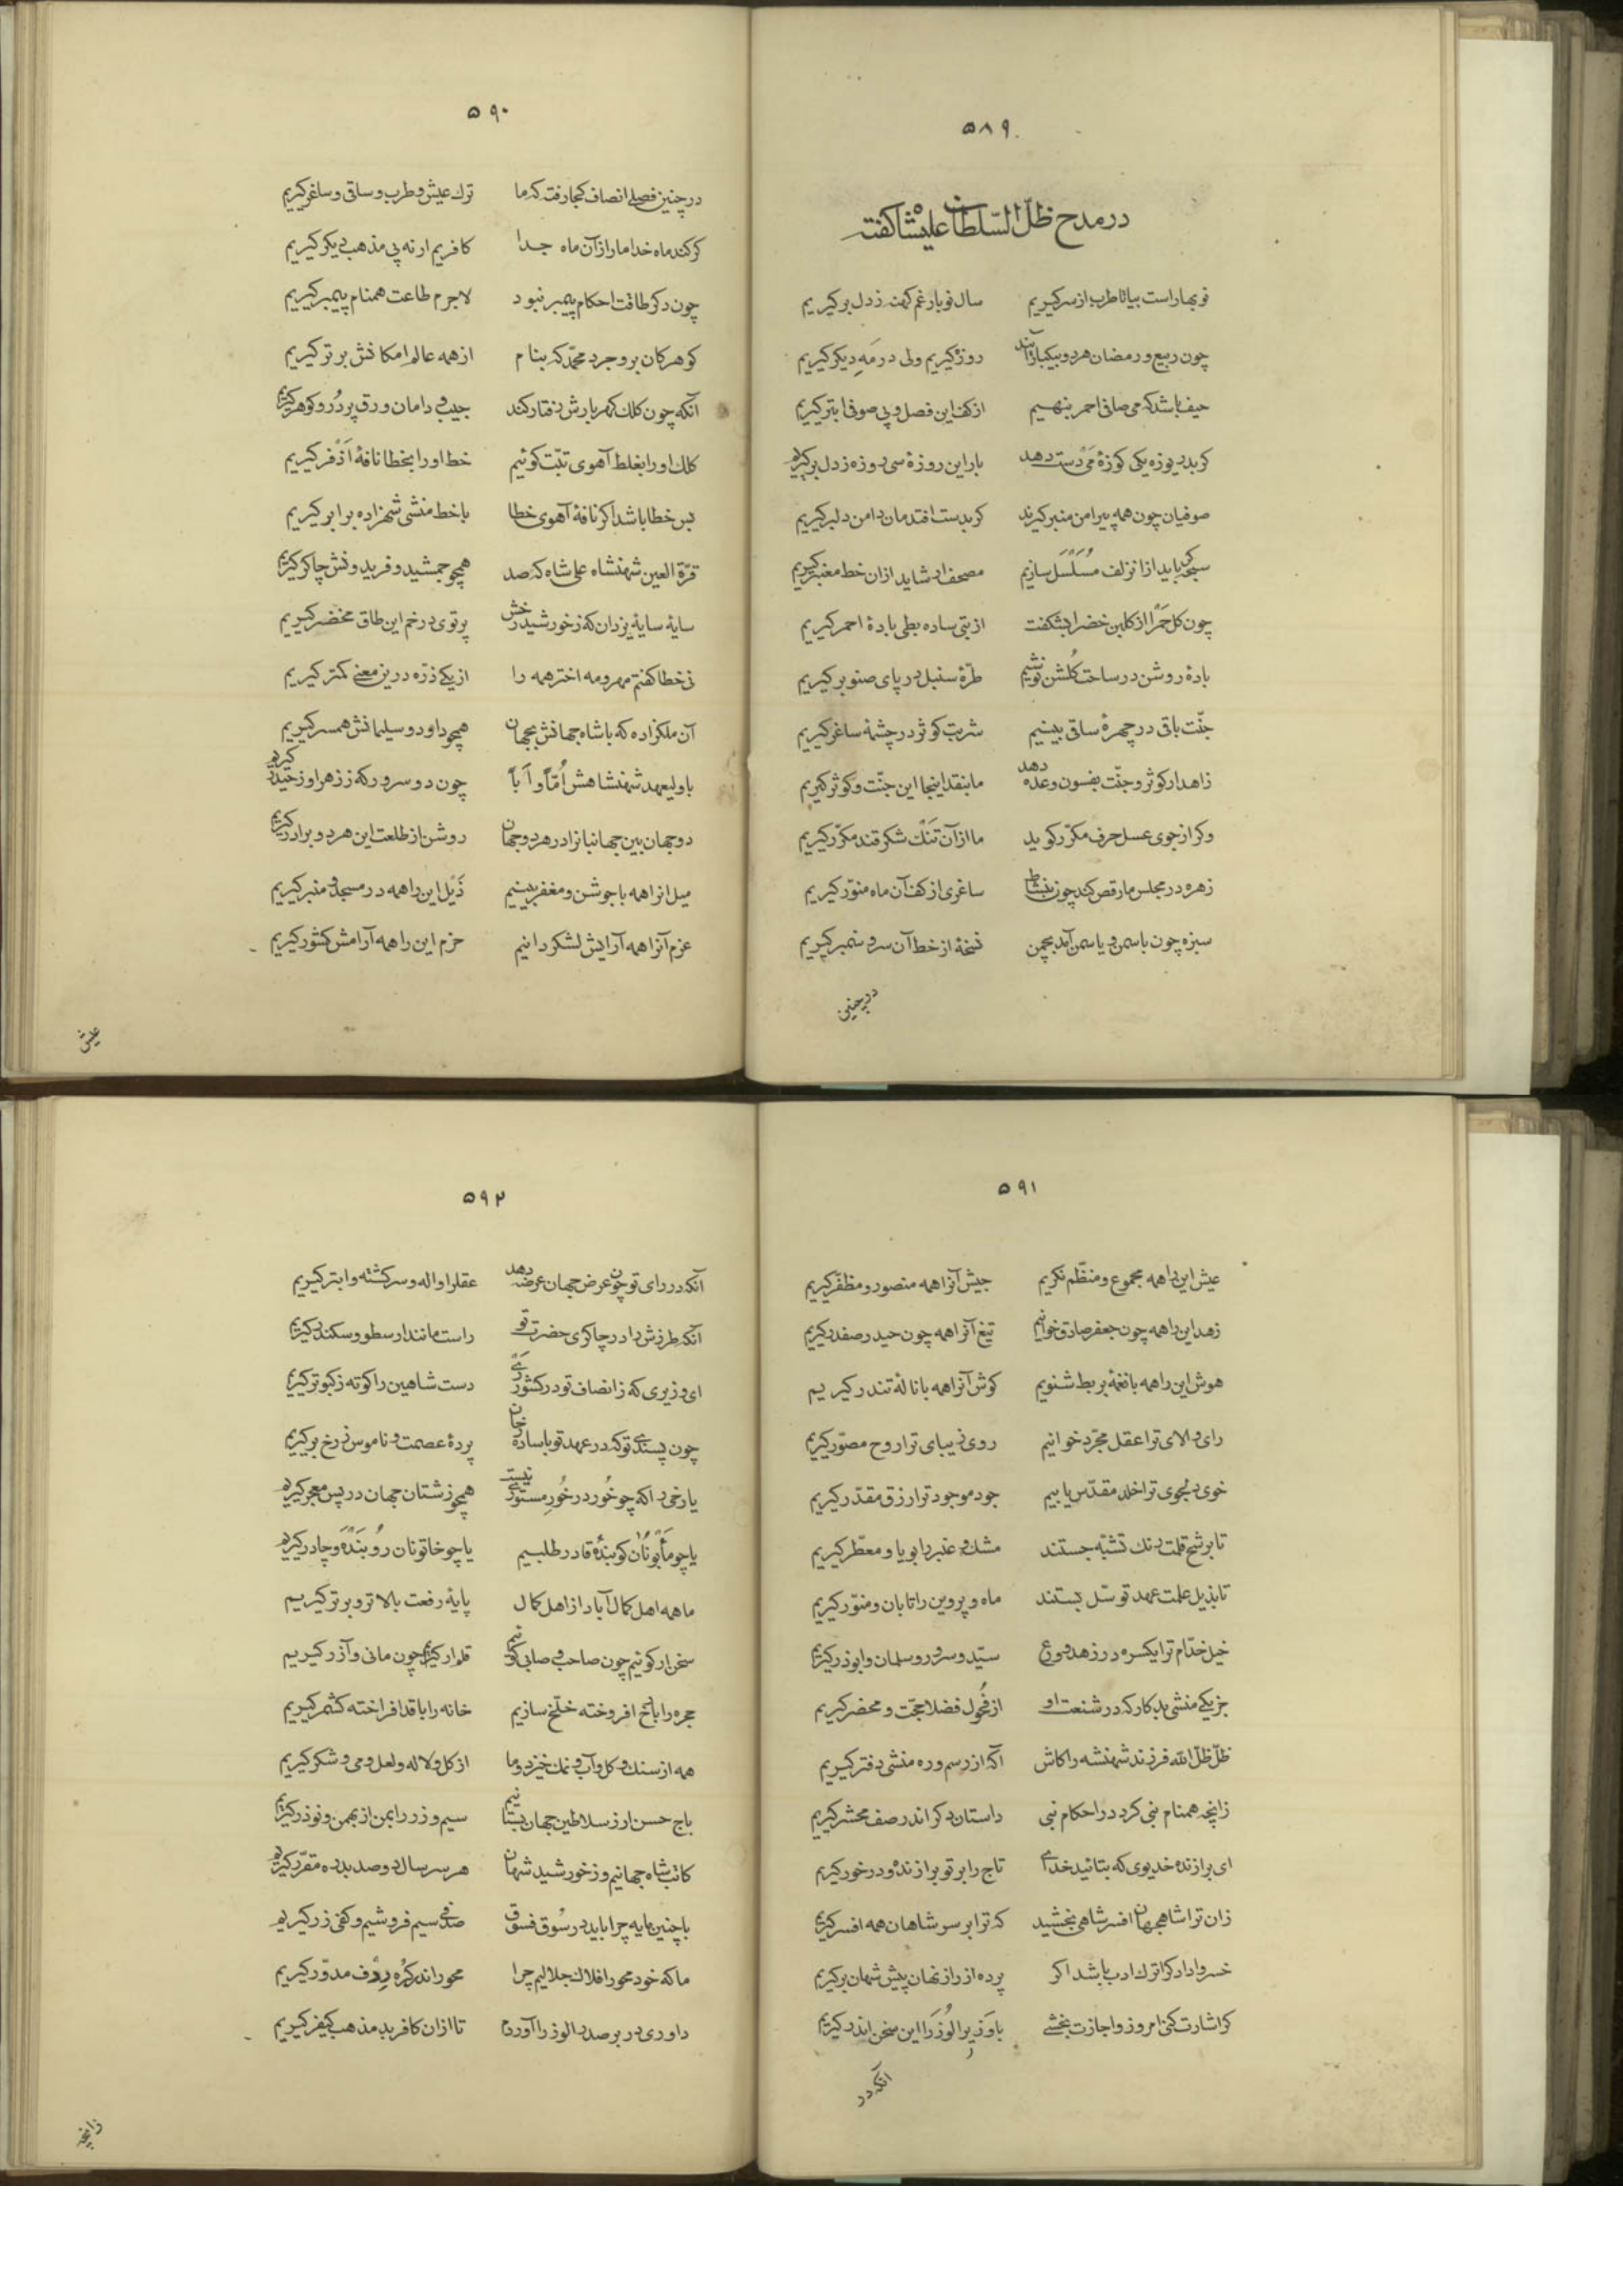 ۵۸۹
در مدح ظلّ السّلطان علیشاه گفته
نوبهار است بیا تا طرب از سر گیریم سال نو بار غم کهنه ز دل بر گیریم
چون ربیع و رمضان هر دو بیکبار آیند روزه گیریم ولی در مَهِ دیگر گیریم
حیف باشد که می صافی احمر بنهیم از کف این فصل و پی صوفی ابتر گیریم
گر بدریوزه یکی کوزهٔ می دست دهد بار این روزهٔ سی روزه ز دل بر گیریم
صوفیان چون همه پیرامن منبر گیرند گر بدست افتدمان دامن دلبر گیریم
سبحه گر باید از آن زلف مُسَلْسَل سازیم مصحف ار شاید از ان خط معنبر گیریم
چون گل حمرا از گلبن خضرا بشکفت از بتی ساده بطی بادهٔ احمر گیریم
بادهٔ روشن در ساحت گلشن نوشیم طرّهٔ سنبل در پای صنوبر گیریم
جنّت باقی در چهرهٔ ساقی بینیم شربت کوثر در چشمهٔ ساغر گیریم
زاهد ار کوثر و جنّت بفسون وعده دهد ما بنقد اینجا این جنّت و کوثر گیریم
وگر از جوی عسل حرف مکرّر گوید ما از آن تَنْگ شکر قند مکرّر گیریم
زهره در مجلس ما رقص کند چون بنشاط ساغری از کف آن ماه منوّر گیریم
سبزه چون با سمن و یاسمن آمد بچمن نسخهٔ از خط آن سرو سمنبر گیریم
در چنین
۵۹۰
در چنین فصلی انصاف کجا رفت که ما ترک عیش و طرب و ساقی و ساغر گیریم
گر کند ماه خدا ما را از آن ماه جدا کافریم ار نه پی مذهب دیگر گیریم
چون دگر طاقت احکام پیمبر نبود لاجرم طاعت همنام پیمبر گیریم
گوهر کان بروجرد محمّد که بنام از همه عالم امکانش برتر گیریم
آنکه چون کلک گهربارش رفتار کند جیب و دامان ورق پر دُر و گوهر گیریم
کلک او را بغلط آهوی تبّت گوئیم خط او را بخطا نافهٔ اَذْفر گیریم
بس خطا باشد اگر نافهٔ آهوی خطا با خط منشی شهزاده برابر گیریم
قرّة العین شهنشاه علی شاه که صد همچو جمشید و فریدونش چاکر گیریم
سایهٔ سایهٔ یزدان که ز خورشید رخش پرتوی در خم این طاق مخضر گیریم
نی خطا گفتم مهر و مه اختر همه را از یکی ذرّه درین معنی کمتر گیریم
آن ملکزاده که با شاه جهانش بجهان همچو داود و سلیمانش همسر گیریم
با ولیعهد شهنشاهش اُمّاً و اَباً چون دو سرور که ز زهرا و ز حیدر گیریم
دو جهان بین جهانبانرا در هر دو جهان روشن از طلعت این هر دو برادر گیریم
میل انرا همه با جوشن و مغفر بینیم ذَیْل این را همه در مسجد و منبر گیریم
عزم آنرا همه آرایش لشکر دانیم حزم این را همه آرامش کشور گیریم
عیش
۵۹۱
عیش این را همه مجموع و منظّم نگریم جیش آنرا همه منصور و مظفّر گیریم
زهد این را همه چون جعفر صادق خوانیم تیغ آنرا همه چون حیدر صفدر گیریم
هوش این را همه با نغمهٔ بربط شنویم گوش آنرا همه با نالهٔ تندر گیریم
رای والای ترا عقل مجرّد خوانیم روی زیبای ترا روح مصوّر گیریم
خوی دلجوی ترا خلد مقدّس یابیم جود موجود ترا رزق مقدّر گیریم
تا برشح قلمت رنگ تشبّه جستند مشک و عنبر را بویا و معطّر گیریم
تا بذیل علمت عهد توسّل بستند ماه و پروین را تابان و منوّر گیریم
خیل خدّام ترا یکسره در زهد و ورع سیّد و سرور و سلمان و ابوذر گیریم
جز یکی منشی بدکار که در شنعت او از فُحول فضلا حجّت و محضر گیریم
ظلّ ظلّ الله فرزند شهنشه را کاش آگه از رسم و ره منشی دفتر گیریم
زانچه همنام نبی کرد در احکام نبی داستان دگر اندر صف محشر گیریم
ای برازنده خدیوی که بتائید خدای تاج را بر تو برازنده و در خور گیریم
زان ترا شاه جهان افسر شاهی بخشید که ترا بر سر شاهان همه افسر گیریم
خسروا دادگرا ترک ادب باشد اگر پرده از راز نهان پیش شهان بر گیریم
گر اشارت کنی امروز و اجازت بخشی با وَزیرُ الوُزَرا این سخن اندر گیریم
آنکه در
۵۹۲
آنکه در رای تو چون عرض جهان عرضه دهد عقل را واله و سرگشته و ابتر گیریم
آنکه طرزش را در چاکری حضرت تو راست مانند ارسطو و سکندر گیریم
ای وزیری که ز انصاف تو در کشور ری دست شاهین را کوته ز کبوتر گیریم
چون پسندی تو که در عهد تو با ساده رخان پردهٔ عصمت و ناموس ز رخ بر گیریم
یا رخی را که چو خُور در خُورِ مستوری نیست همچو زشتان جهان در پس معجر گیریم
یا چو مَأْبُونان گویندهٔ قادر طلبیم یا چو خاتونان رُو بَنْدَه و چادر گیریم
ما همه اهل کمال آباد از اهل کمال پایهٔ رفعت بالاتر و برتر گیریم
سخن ار گوئیم چون صاحب و صابی گوئیم قلم ار گیریم چون مانی و آذر گیریم
حجره را با رخ افروخته خلّخ سازیم خانه را با قد افراخته کشمر گیریم
همه از سنگ و گل و آب و نمک خیزد و ما از گل و لاله و لعل و می و شکر گیریم
باج حسن ار ز سلاطین جهان بستانیم سیم و زر را بمن از بهمن و نوذر گیریم
کاتب شاه جهانیم و ز خورشید شهان هر سر سال دو صد بدره مقرّر گیریم
با چنین مایه چرا باید در سُوق فسوق صدفی سیم فروشیم و کفی زر گیریم
ما که خود محور افلاک جلالیم چرا محور اندر کُرَه رِدْف مدوّر گیریم
داوری در بر صدر الوزرا آوردم تا ازان کافر بد مذهب کیفر گیریم
زانچه